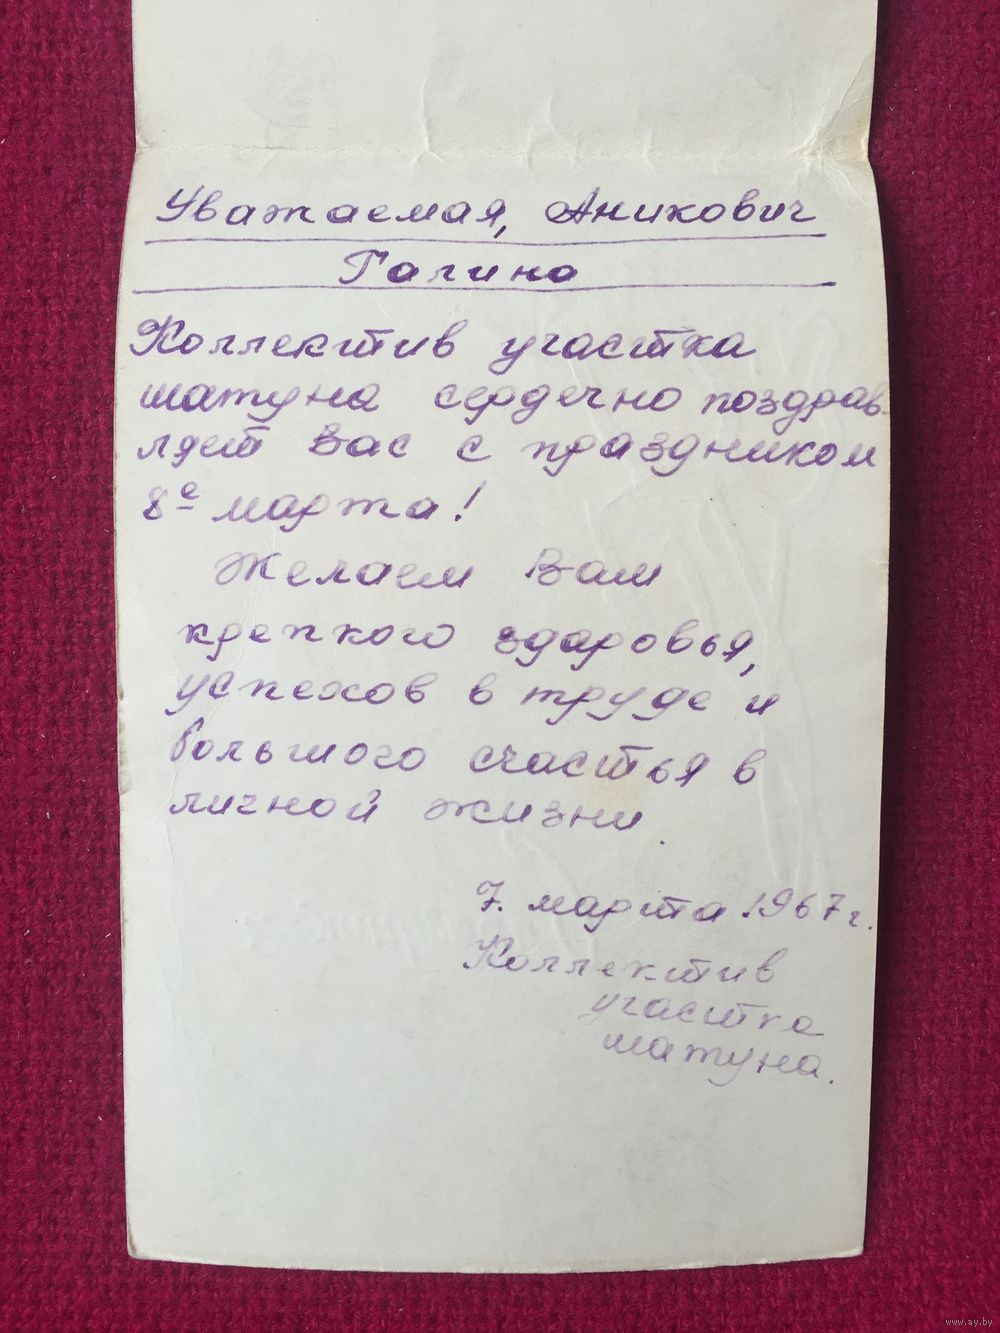 Уважаемая, Аникович
Галина
Коллектив участка
шатуна сердечно поздрав-
ляет Вас с праздником
8е марта!
Желаем Вам
крепкого здоровья,
успехов в труде и
большого счастья в
личной жизни.
7. марта 1967 г.
Коллектив
участка
шатуна.
www.ay.by